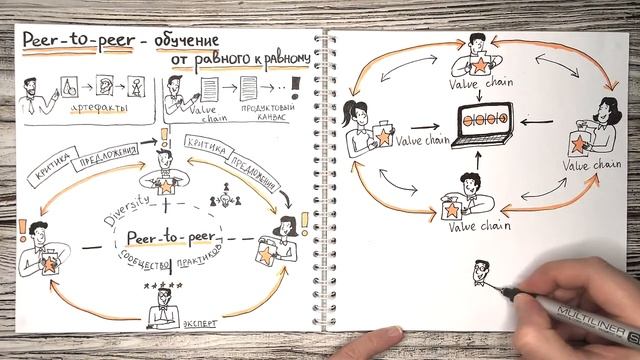 Peer-to-peer - обучение
от равного к равному
АРТЕФАКТЫ
Value chain
ПРОДУКТОВЫЙ КАНВАС
КРИТИКА
ПРЕДЛОЖЕНИЯ
КРИТИКА
ПРЕДЛОЖЕНИЯ
Diversity
Peer-to-peer
СООБЩЕСТВО ПРАКТИКОВ
ЭКСПЕРТ
Value chain
Value chain
Value chain
Value chain
MULTILINER